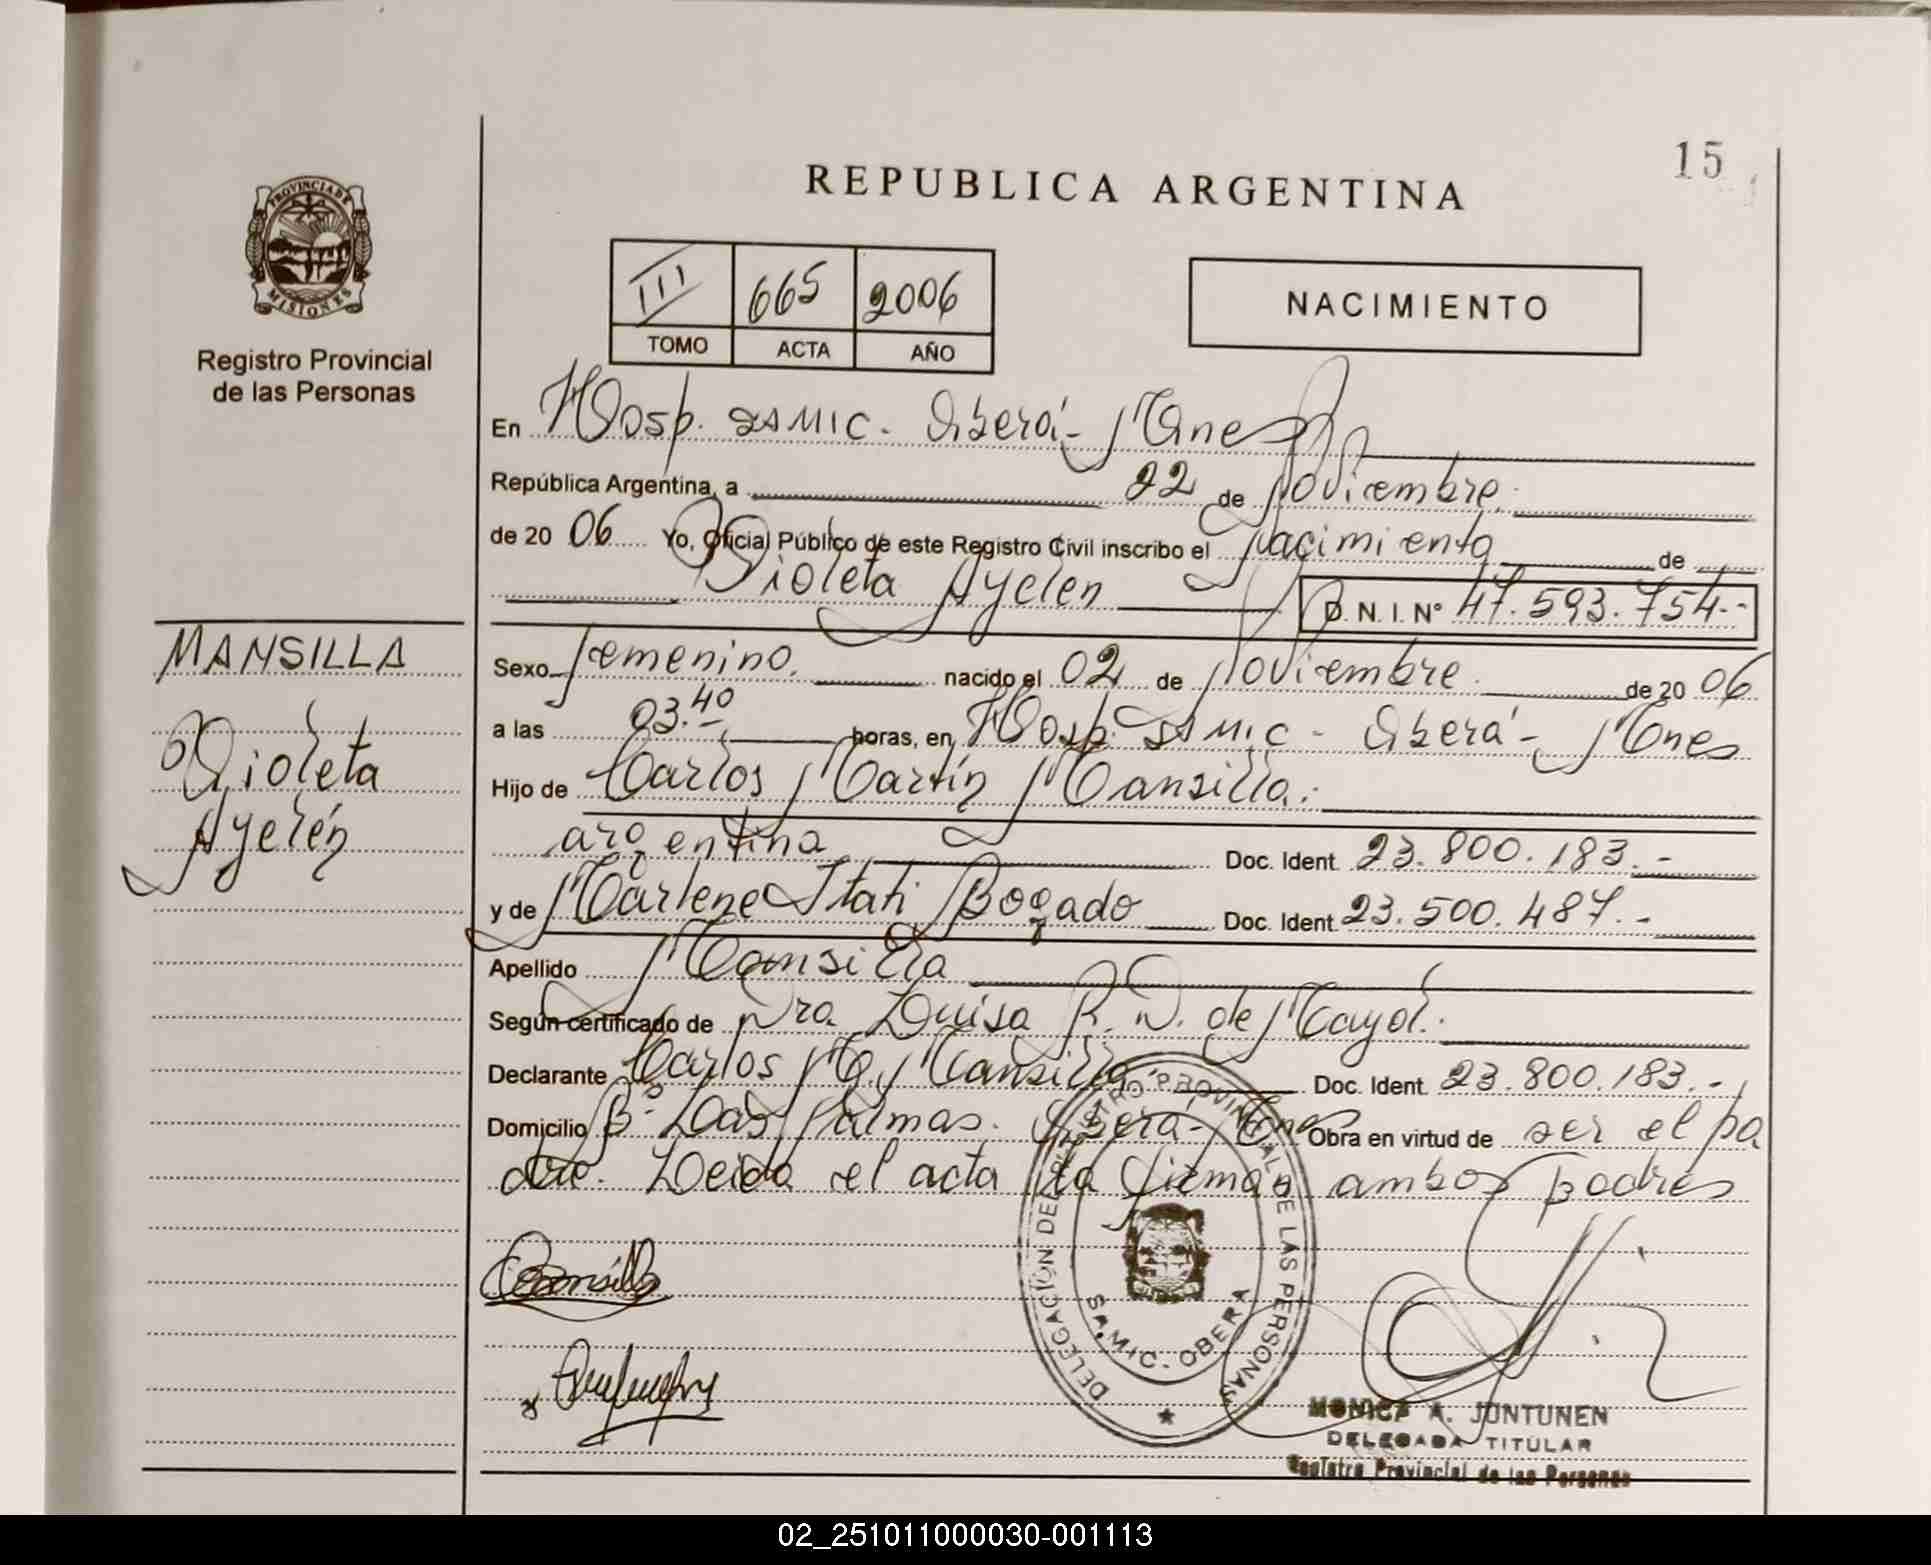 15
REPUBLICA ARGENTINA
PROVINCIA DE
MISIONES
Registro Provincial
de las Personas
III 665 2006
TOMO ACTA AÑO
NACIMIENTO
En Hosp. SAMIC. Oberá - Mnes
República Argentina, a 22 de Noviembre.
de 20 06 Yo, Oficial Público de este Registro Civil inscribo el Nacimiento de
Violeta Ayelen
D. N. I. Nº 47.593.754.-
MANSILLA
Violeta
Ayelén
Sexo Femenino. nacido el 02 de Noviembre. de 20 06
a las 03.40 horas, en Hosp. SAMIC - Oberá - Mnes
Hijo de Carlos Martín Mansilla.
argentina Doc. Ident. 23.800.183.-
y de Marlene Itati Bogado Doc. Ident. 23.500.487.-
Apellido Mansilla
Según certificado de Dra. Luisa R. D. de Mayol.
Declarante Carlos M. Mansilla. Doc. Ident. 23.800.183.-
Domicilio Bº Las Palmas. Oberá - Mnes Obra en virtud de ser el pa
dre. Leida el acta la firman ambos padres
DELEGACIÓN DEL REGISTRO PROVINCIAL DE LAS PERSONAS
SA.MIC. OBERA
MONICA A. JUNTUNEN
DELEGADA TITULAR
Registro Provincial de las Personas
02_251011000030-001113